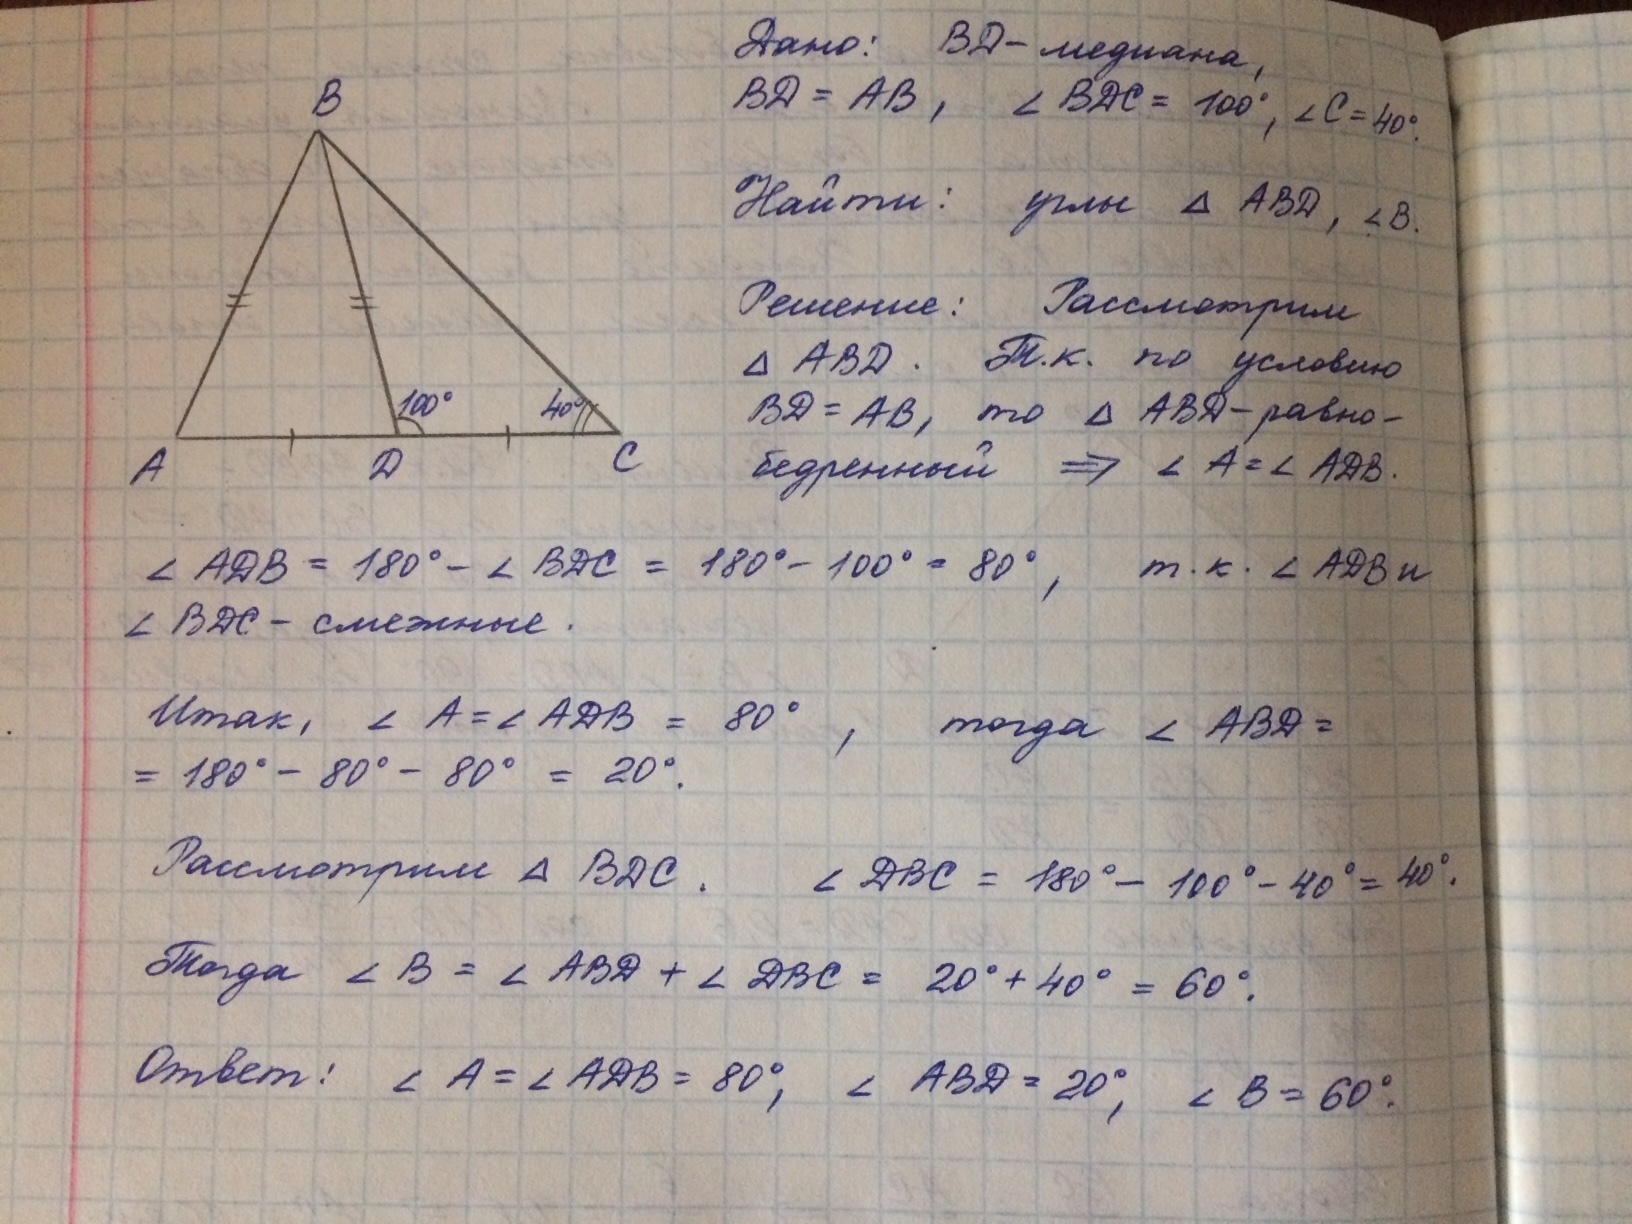 Дано: BD - медиана,
BD = AB, ∠ BDC = 100°, ∠ C = 40°.
Найти: углы △ ABD, ∠ B.
Решение: Рассмотрим
△ ABD. Т.к. по условию
BD = AB, то △ ABD - равно-
бедренный ⇒ ∠ A = ∠ ADB.
B
100°
40°
A
D
C
∠ ADB = 180° - ∠ BDC = 180° - 100° = 80°, т.к. ∠ ADB и
∠ BDC - смежные.
Итак, ∠ A = ∠ ADB = 80°, тогда ∠ ABD =
= 180° - 80° - 80° = 20°.
Рассмотрим △ BDC. ∠ DBC = 180° - 100° - 40° = 40°.
Тогда ∠ B = ∠ ABD + ∠ DBC = 20° + 40° = 60°.
Ответ: ∠ A = ∠ ADB = 80°, ∠ ABD = 20°, ∠ B = 60°.